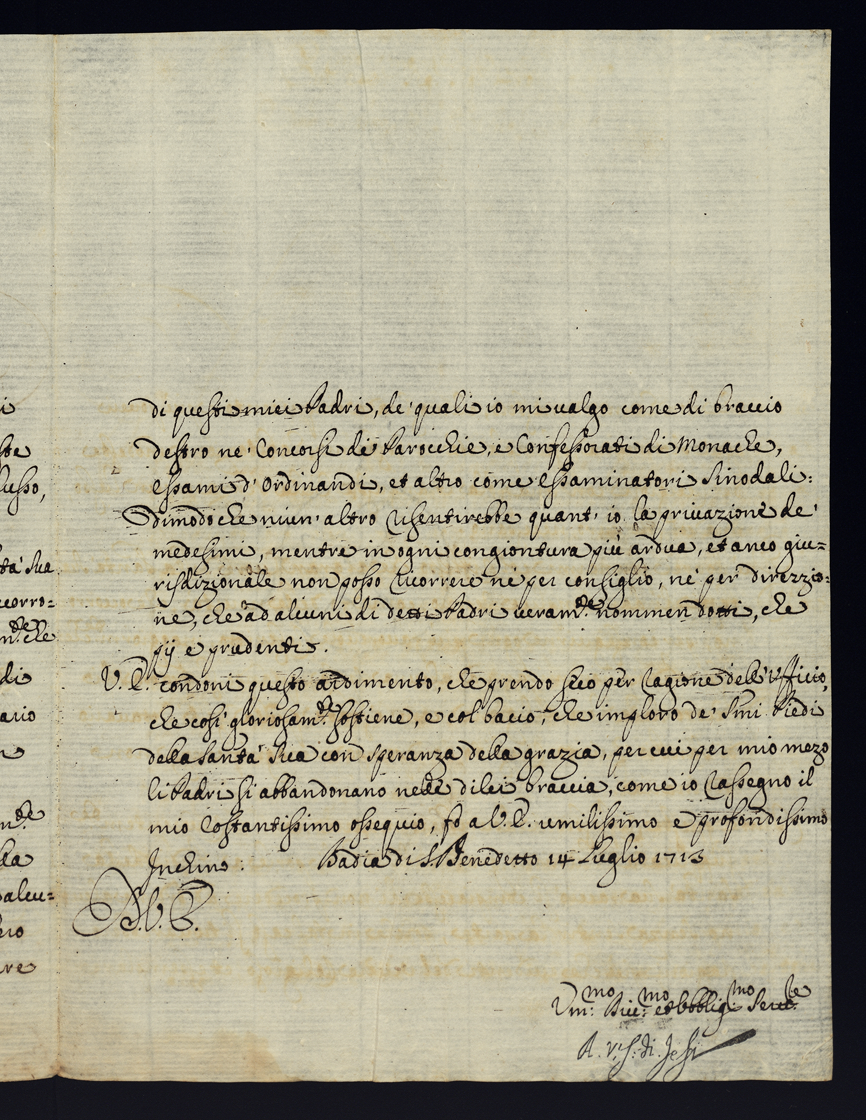 di questi miei Padri, de' quali io mi valgo come di braccio
destro ne' Concorsi de' Parocchie, e Confessorati di Monache,
essami d'Ordinandi, et altro come Essaminatori Sinodali:
Dimodoche niun' altro risentirebbe quant' io la privazione de'
medesimi, mentre in ogni congiontura più ardua, et anco giu=
risdizionale non posso ricorrere ne per consiglio, ne per direzzio=
ne, che ad alcuni di detti Padri veram.te nommen dotti, che
pij e prudenti.
V.E. condoni questo ardimento, che prendo seco per ragione dell'Ufficio,
che così gloriosam.te sostiene, e col bacio, che imploro de' Smi Piedi
della Santa' Sua con speranza della grazia, per cui per mio mezo
li Padri si abbandonano nelle di lei braccia, come io rassegno il
mio costantissimo ossequio, fo a V.E. umilissimo e profondissimo
Inchino. Badia di S. Benedetto 14 Luglio 1713
D.V.E.
Um.mo Div.mo et Obblig.mo Serv.re
A. V. di Jesi
i
ste
lusso,
tà Sua
corro=
m.te che
di
ario
n
n.te
lla
valeu=
ero
re